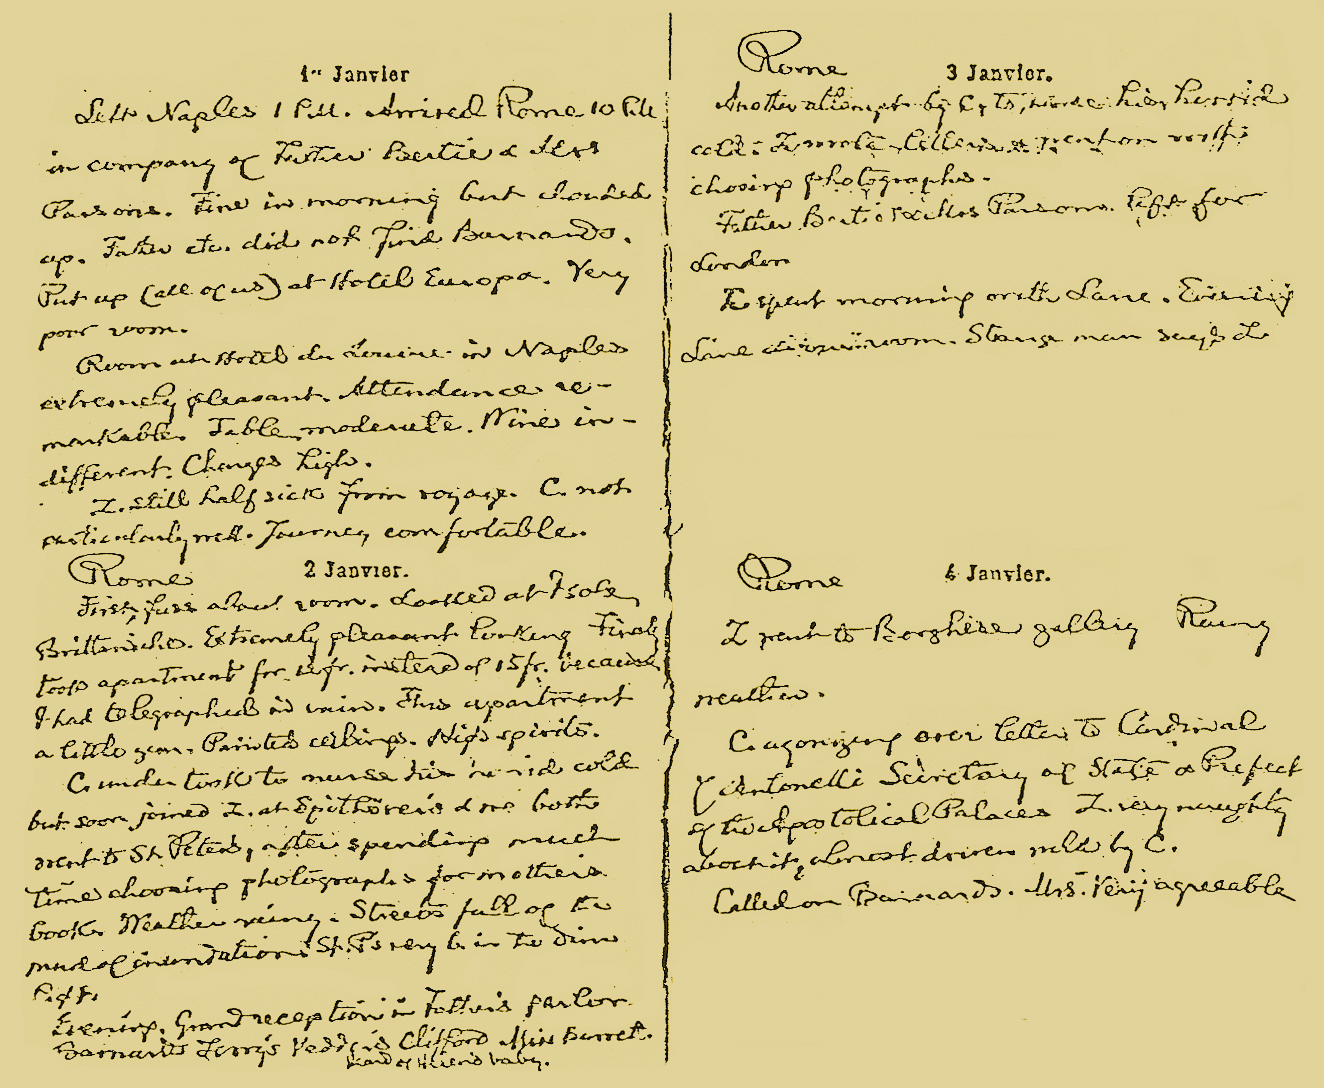 1er Janvier
Left Naples 1 P.M. Arrived Rome 10 P.M
in company of Father Bertie & Miss
Parsons. Fine in morning but clouded
up. Father etc. did not find Barnards.
Put up (all of us) at Hotel Europa. Very
poor room.
Room at Hotel du Louvre in Naples
extremely pleasant. Attendance re-
markable. Table moderate. Wine in-
different. Charges high.
Z. still half sick from voyage. C. not
particularly well. Journey comfortable.
Rome 2 Janvier.
First, fuss about room. Looked at Isole
Brittaniche. Extremely pleasant looking Finally
took apartment for 12 fr. instead of 15 fr. because
I had telegraphed in vain. This apartment
a little gem. Painted ceilings. High spirits.
C. undertook to nurse his horrid cold
but soon joined Z. at Spithöver's & we both
went to St. Peters, after spending much
time choosing photographs for mother's
book. Weather rainy. Streets full of the
mud of inundation. St. P's very b. in the dim
light.
Evening. Grand reception in Father's parlor
Barnards Terry's Vedder's Clifford Miss Burret.
Rome 3 Janvier.
Another attempt by C. to nurse his horrid
cold. Z wrote letters & went on with
chosing photographs.
Father Bertie & Miss Parsons left for
London
Z. spent morning with Lane. Evening
Lane in our room. Strange man says Z.
Rome 4 Janvier.
Z went to Borghese gallery Rainy
weather.
C. agonizing over letter to Cardinal
Antonelli Secretary of State & Prefect
of the Apostolical Palaces Z. very naughty
about it, almost driven wild by C.
Called on Barnards. Mrs. very agreeable